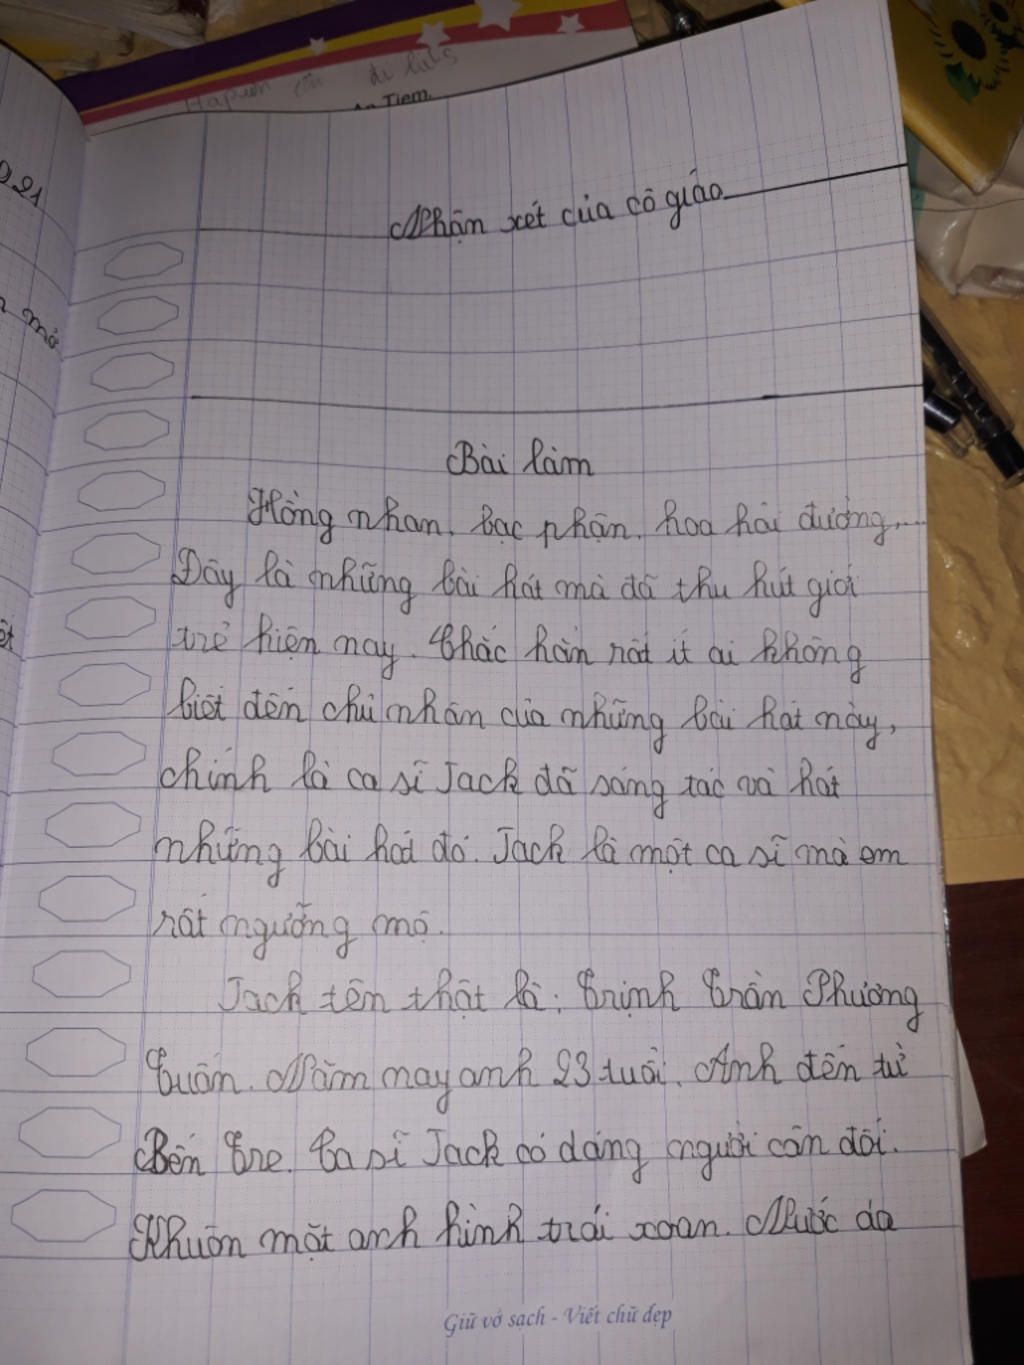 di
An Tiem.
021
mở
Nhận xét của cô giáo
Bài làm
Hồng nhan, bạc phận, hoa hải đường,...
Đây là những bài hát mà đã thu hút giới
trẻ hiện nay. Chắc hẳn rất ít ai không
biết đến chủ nhân của những bài hát này,
chính là ca sĩ Jack đã sáng tác và hát
những bài hát đó. Jack là một ca sĩ mà em
rất ngưỡng mộ.
Jack tên thật là: Trịnh Trần Phương
Tuấn. Năm nay anh 23 tuổi. Anh đến từ
Bến Tre. Ca sĩ Jack có dáng người cân đối.
Khuôn mặt anh hình trái xoan. Nước da
Giữ vở sạch - Viết chữ đẹp